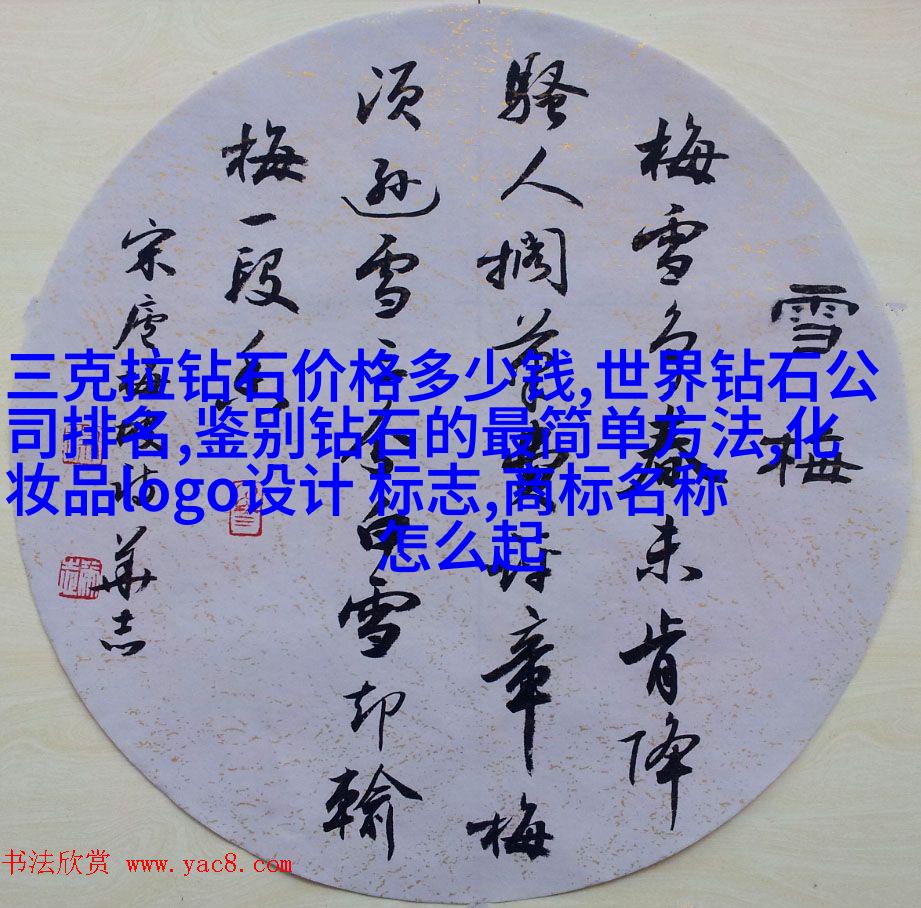 雪梅
梅雪争春未肯降
骚人搁笔费评章梅
须逊雪三分白雪却输
梅一段香
宋卢梅坡诗 华志
三克拉钻石价格多少钱,世界钻石公
司排名,鉴别钻石的最简单方法,化
妆品logo设计 标志,商标名称
怎么起
书法欣赏 www.yac8.com